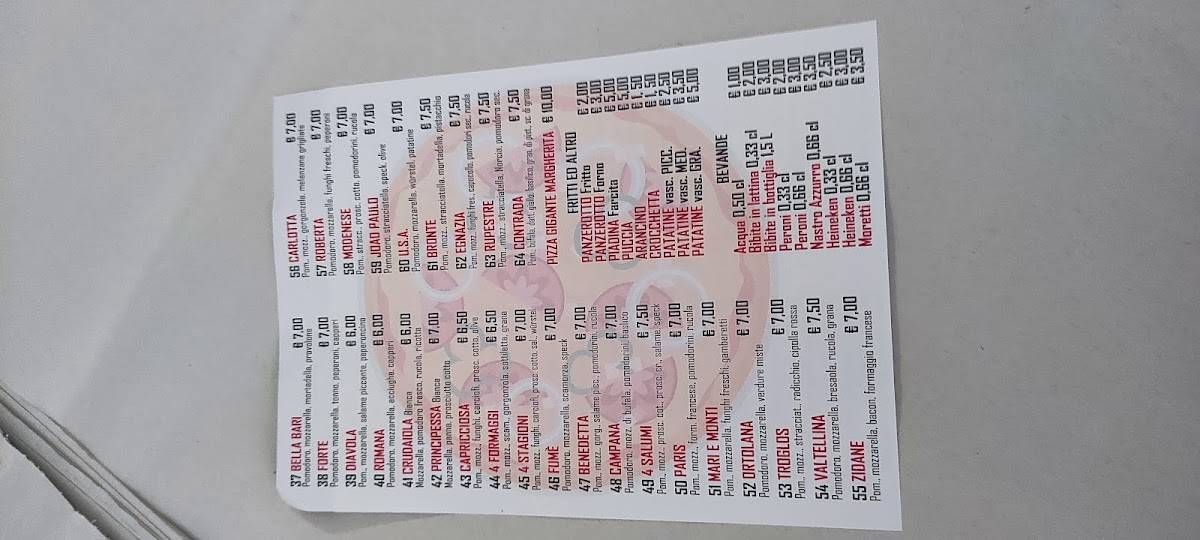 37 BELLA BARI € 7,00
Pomodoro, mozzarella, mortadella, provolone
38 FORTE € 7,00
Pomodoro, mozzarella, tonno, peperoni, capperi
39 DIAVOLA € 6,00
Pom., mozzarella, salame piccante, peperoncino
40 ROMANA € 6,00
Pomodoro, mozzarella, acciughe, capperi
41 CRUDAIOLA Bianca € 6,00
Mozzarella, pomodoro fresco, rucola, ricotta
42 PRINCIPESSA Bianca € 7,00
Mozzarella, panna, prosciutto cotto
43 CAPRICCIOSA € 6,50
Pom., mozz., funghi, carciofi, prosc. cotto, olive
44 4 FORMAGGI € 6,50
Pom., mozz., scam., gorgonzola, sottiletta, grana
45 4 STAGIONI € 7,00
Pom., mozz., funghi, carciofi, prosc. cotto, sal., würstel
46 FUMÈ € 7,00
Pomodoro, mozzarella, scamorza, speck
47 BENEDETTA € 7,00
Pom., mozz., gorg., salame picc., pomodorini, rucola
48 CAMPANA € 7,00
Pomodoro, mozz. di bufala, pomodorini, basilico
49 4 SALUMI € 7,50
Pom., mozz., prosc. cot., prosc. cr., salame, speck
50 PARIS € 7,00
Pom., mozz., form. francese, pomodorini, rucola
51 MARI E MONTI € 7,00
Pom., mozzarella, funghi freschi, gamberetti
52 ORTOLANA € 7,00
Pomodoro, mozzarella, verdure miste
53 TROGLOS € 7,00
Pom., mozz., stracciat., radicchio, cipolla rossa
54 VALTELLINA € 7,50
Pomodoro, mozzarella, bresaola, rucola, grana
55 ZIDANE € 7,00
Pom., mozzarella, bacon, formaggio francese
56 CARLOTTA € 7,00
Pom., mozz., gorgonzola, melanzane grigliate
57 ROBERTA € 7,00
Pomodoro, mozzarella, funghi freschi, peperoni
58 MODENESE € 7,00
Pom., stracc., prosc. cotto, pomodorini, rucola
59 JOAO PAULO € 7,00
Pomodoro, stracciatella, speck, olive
60 U.S.A. € 7,00
Pomodoro, mozzarella, würstel, patatine
61 BRONTE € 7,50
Pom., mozz., stracciatella, mortadella, pistacchio
62 EGNAZIA € 7,50
Pom., mozz., funghi fres., capocollo, pomodori sec., rucola
63 RUPESTRE € 7,50
Pom., mozz., stracciatella, Norcia, pomodoro sec.
64 CONTRADA € 7,50
Pom., bufala, dat. giallo, basilico, gran. di pist., sc. di grana
PIZZA GIGANTE MARGHERITA € 10,00
FRITTI ED ALTRO
PANZEROTTO Fritto € 2,00
PANZEROTTO Forno € 3,00
PIADINA Farcita € 5,00
PUCCIA € 5,00
ARANCINO € 1,50
CROCCHETTA € 1,50
PATATINE vasc. PICC. € 2,50
PATATINE vasc. MED. € 3,50
PATATINE vasc. GRA. € 5,00
BEVANDE
Acqua 0,50 cl € 1,00
Bibite in lattina 0,33 cl € 2,00
Bibite in bottiglia 1,5 L € 3,00
Peroni 0,33 cl € 2,00
Peroni 0,66 cl € 3,00
Nastro Azzurro 0,66 cl € 3,50
Heineken 0,33 cl € 2,50
Heineken 0,66 cl € 3,00
Moretti 0,66 cl € 3,50